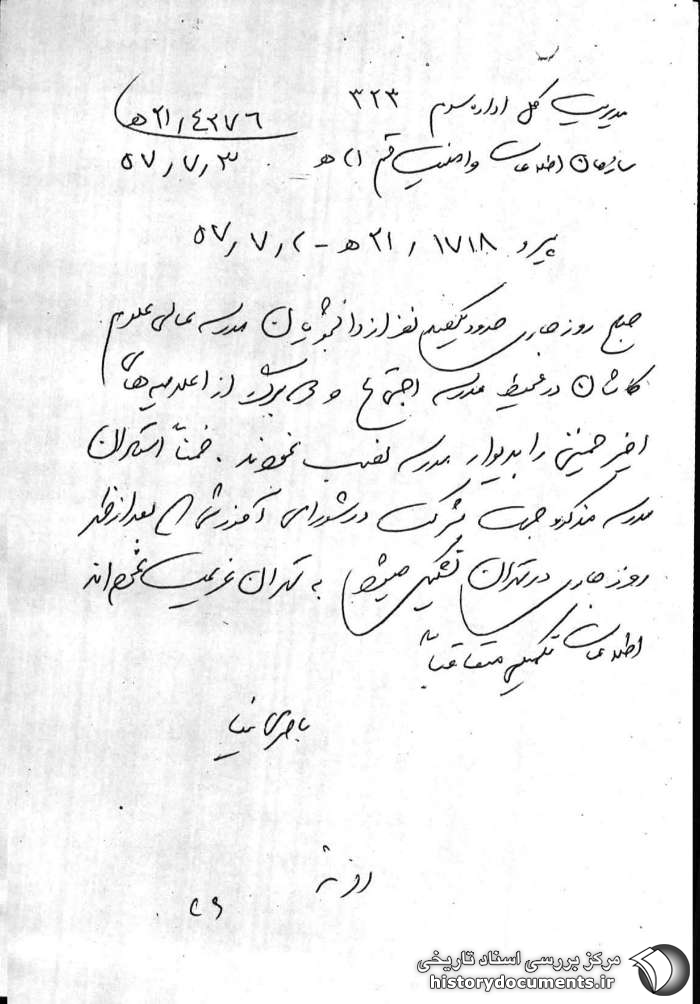 مدیریت کل اداره سوم ۳۲۳
۲۱/۴۲۷۶ ه‍
سازمان اطلاعات و امنیت قم ۲۱ ه‍
۵۷/۷/۳
پیرو ۱۷۱۸ / ۲۱ ه‍ – ۵۷/۷/۲
صبح روز جاری حدود یکصد نفر از دانشجویان مدرسه عالی علوم
کاشان در محیط مدرسه اجتماع و برگ از اعلامیه‌های
اخیر خمینی را بدیوار مدرسه نصب نمودند. ضمناً استادان
مدرسه مذکور جهت شرکت در شورای آموزشی بعد از ظهر
روز جاری در تهران تشکیل میشود به تهران عزیمت نموده‌اند
اطلاعات تکمیلی متعاقباً
مرکز بررسی اسناد تاریخی
historydocuments.ir